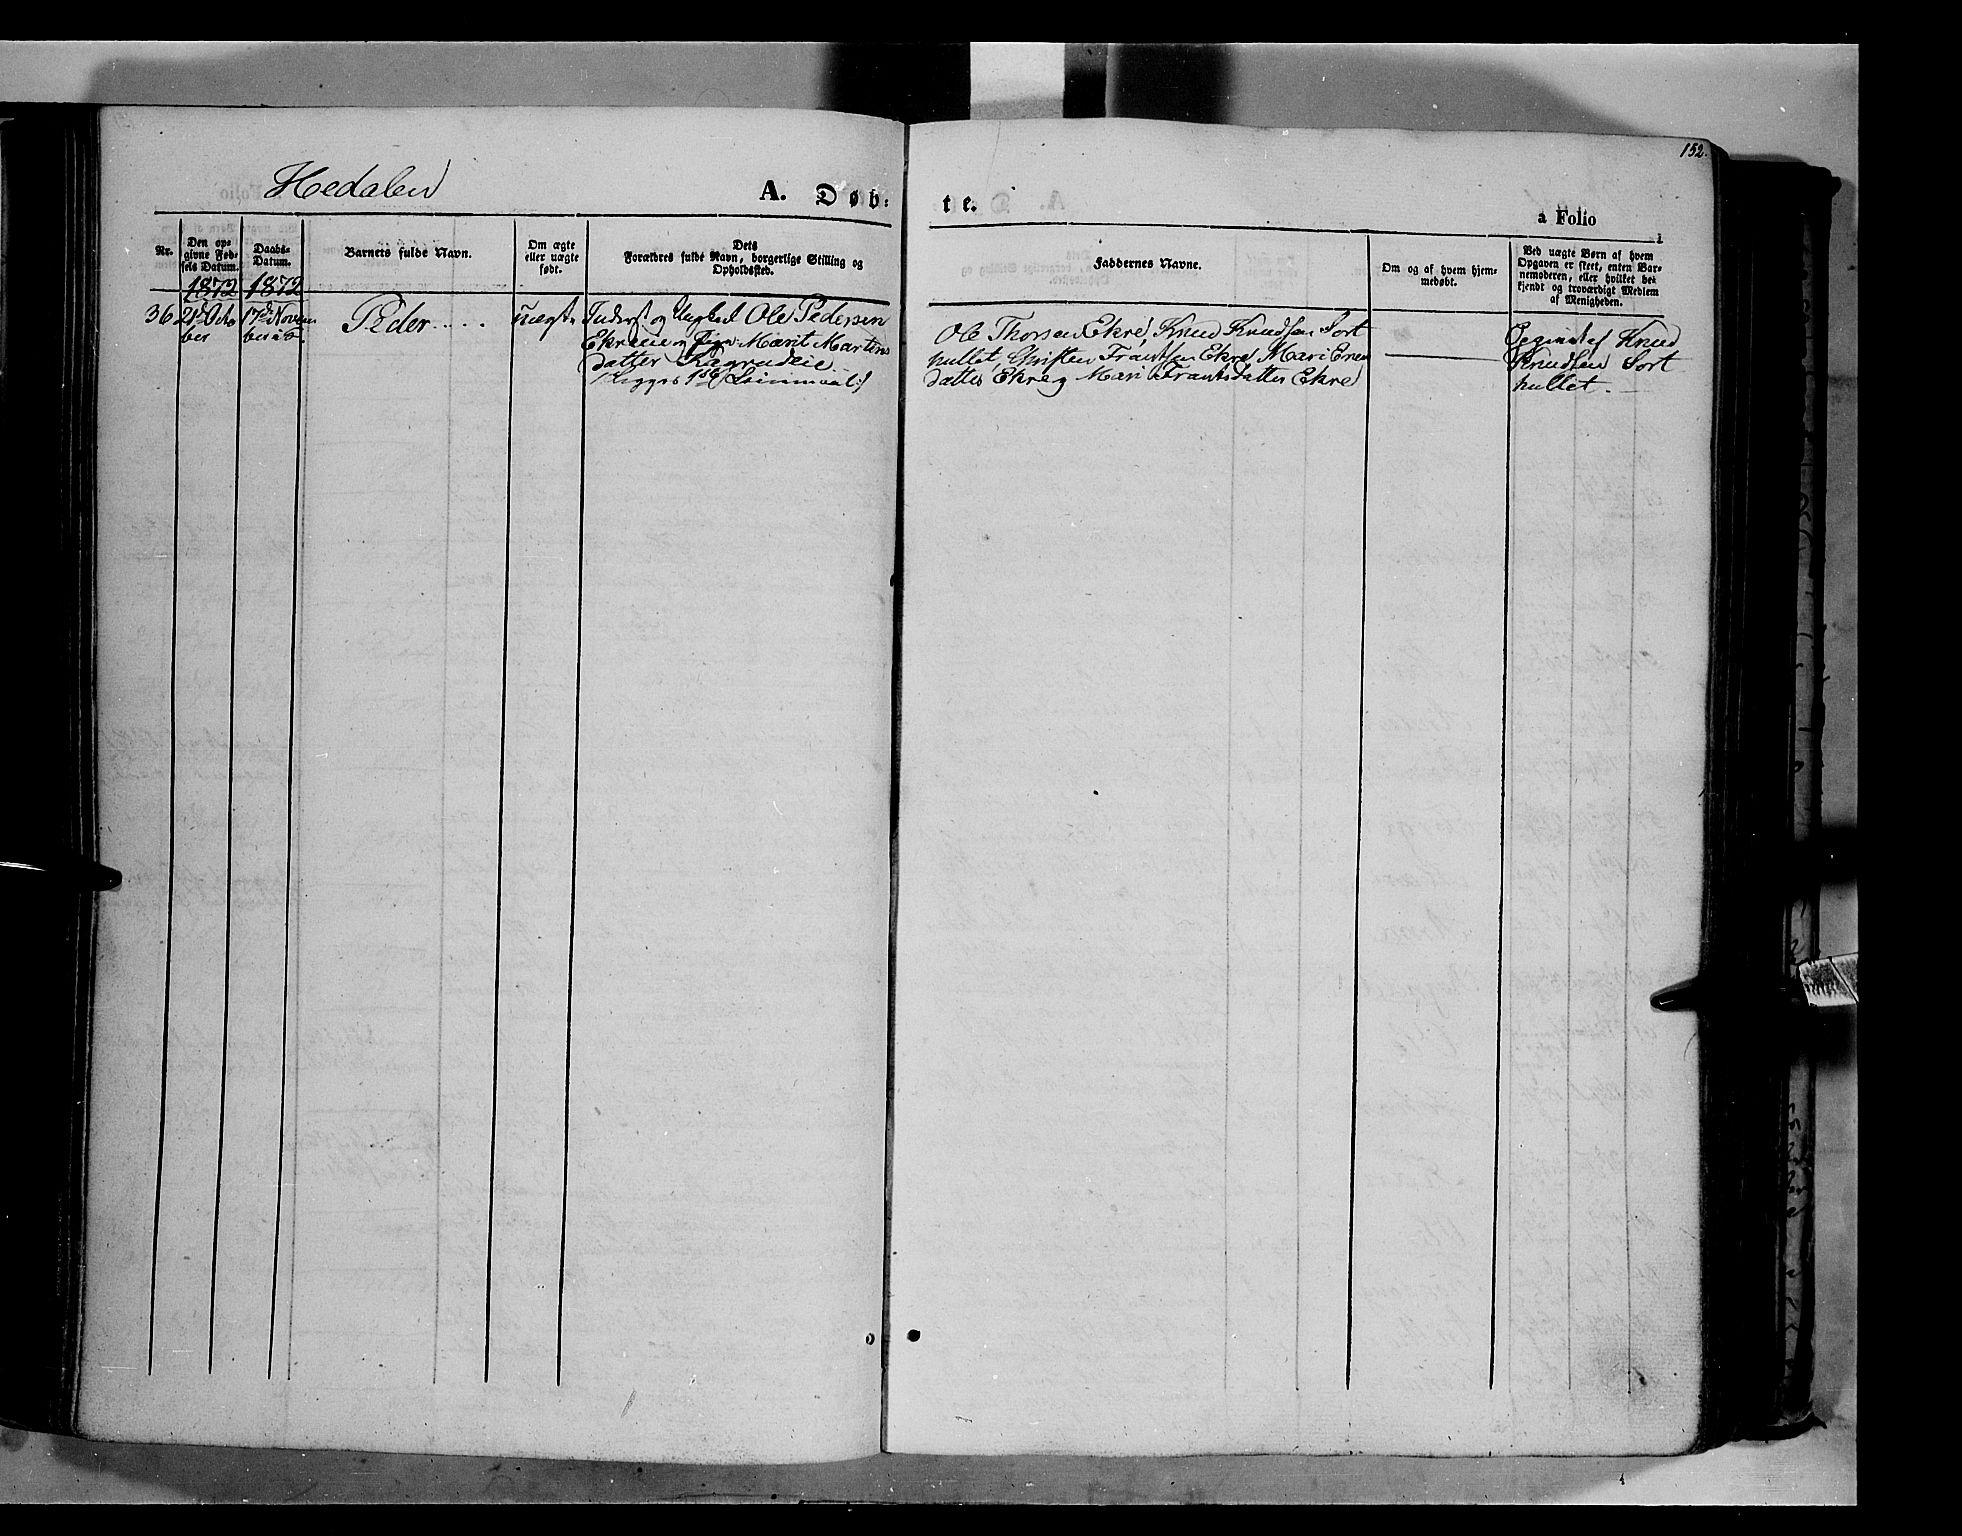 152.
Hedalen
A. Døb-
te.
a Folio
Nr.
Den op-
givne Fød-
sels Datum.
Daabs-
Datum.
Barnets fulde Navn.
Om ægte
eller uægte
født.
Dets
Forældres fulde Navn, borgerlige Stilling og
Opholdssted.
Faddernes Navne.
Om og af hvem hjem-
medøbt.
Ved uægte Børn af hvem
Opgaven er skeet, enten Bar-
nemoderen, eller hvilket be-
kjendt og troværdigt Medlem
af Menigheden.
1872
1872
36
21de Octo
ber
17de Novem
ber
Peder
uægte
Inderst og Ungkarl Ole Pedersen
Ekreeie og Pige Marit Martins
datter
/:Begges 1ste Leiermaal:/
Ole Thorsen Ekre, Knud Knudsen Sort
hullet, Christen Frantsen Ekre Mari
datter Ekre og Mari Frantsdatter Ekre
Opgivet af Knud
Knudsen Sort
hullet.